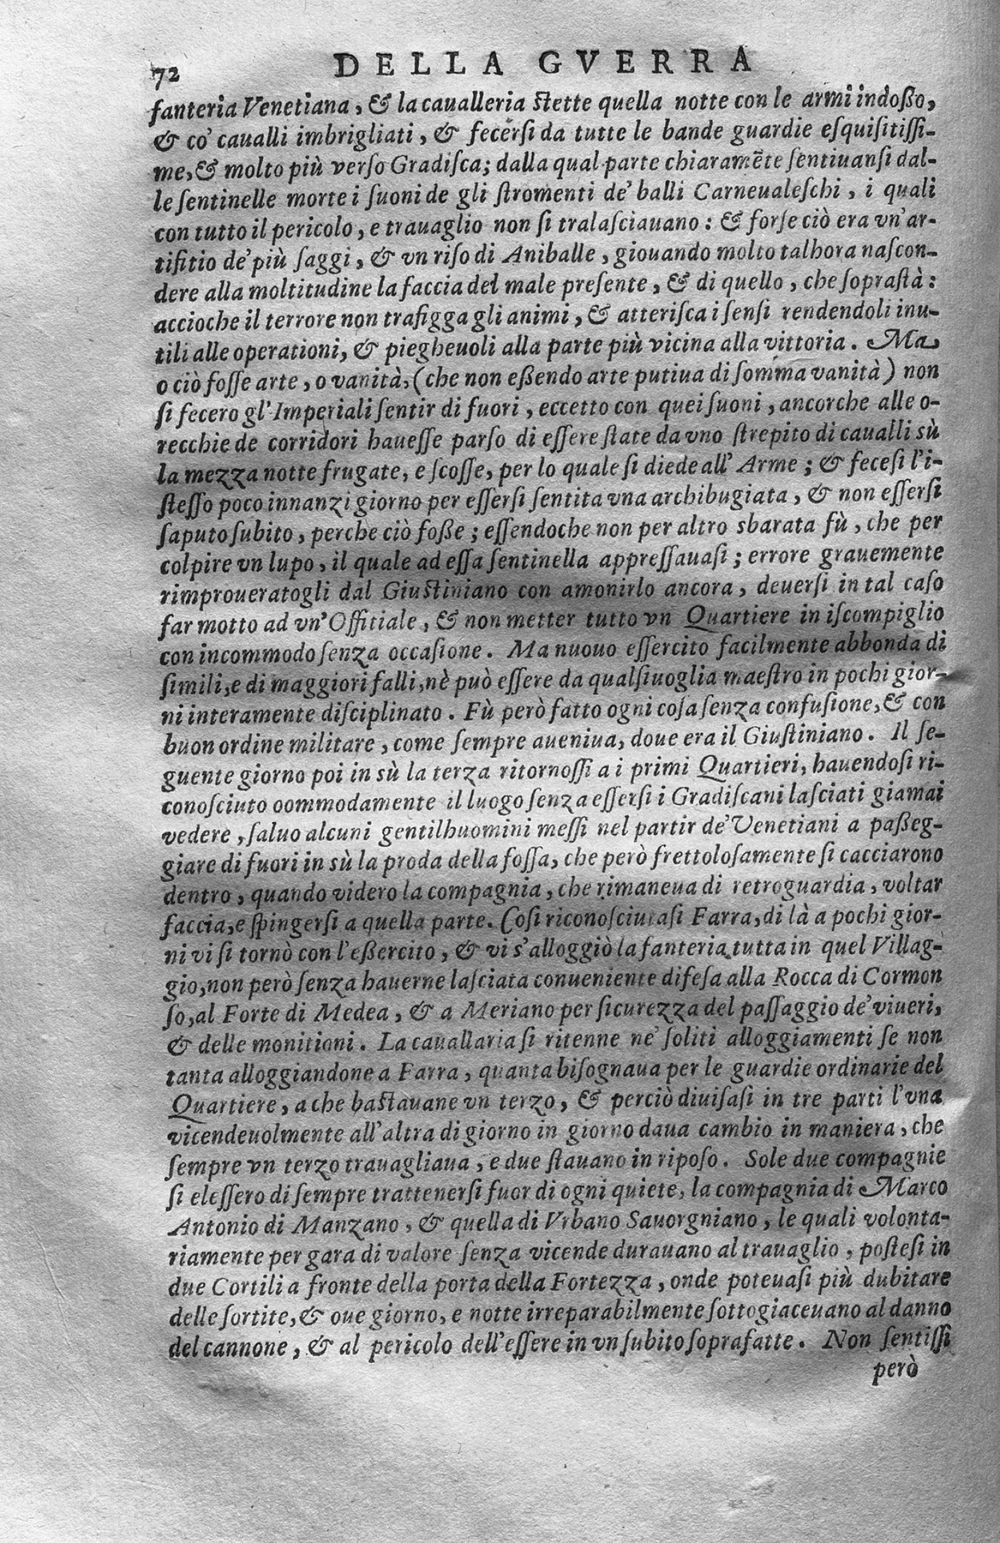 72 DELLA GVERRA
fanteria Venetiana, & la caualleria ſtette quella notte con le armi indoßo,
& co' caualli imbrigliati, & fecerſi da tutte le bande guardie eſquiſitiſſi-
me, & molto più verſo Gradiſca; dalla qual parte chiaramẽte ſentiuanſi dal-
le ſentinelle morte i ſuoni de gli ſtromenti de' balli Carneualeſchi, i quali
con tutto il pericolo, e trauaglio non ſi tralaſciauano: & forſe ciò era vn'ar-
tifitio de' più ſaggi, & vn riſo di Aniballe, giouando molto talhora naſcon-
dere alla moltitudine la faccia del male preſente, & di quello, che ſopraſtà:
accioche il terrore non trafigga gli animi, & atteriſca i ſenſi rendendoli inu-
tili alle operationi, & piegheuoli alla parte più vicina alla vittoria. Ma
o ciò foſſe arte, o vanità, (che non eßendo arte putiua di ſomma vanità) non
ſi fecero gl'Imperiali ſentir di fuori, eccetto con quei ſuoni, ancorche alle o-
recchie de corridori haueſſe parſo di eſſere ſtate da vno ſtrepito di caualli sù
la mezza notte frugate, e ſcoſſe, per lo quale ſi diede all' Arme; & feceſi l'i-
ſteſſo poco innanzi giorno per eſſerſi ſentita vna archibugiata, & non eſſerſi
ſaputo ſubito, perche ciò foße; eſſendoche non per altro sbarata fù, che per
colpire vn lupo, il quale ad eſſa ſentinella appreſſauaſi; errore grauemente
rimproueratogli dal Giuſtiniano con amonirlo ancora, deuerſi in tal caſo
far motto ad vn' Offitiale, & non metter tutto vn Quartiere in iſcompiglio
con incommodo ſenza occaſione. Ma nuouo eſſercito facilmente abbonda di
ſimili, e di maggiori falli, nè può eſſere da qualſiuoglia maeſtro in pochi gior-
ni interamente diſciplinato. Fù però fatto ogni coſa ſenza confuſione, & con
buon ordine militare, come ſempre aueniua, doue era il Giuſtiniano. Il ſe-
guente giorno poi in sù la terza ritornoſſi a i primi Quartieri, hauendoſi ri-
conoſciuto oommodamente il luogo ſenza eſſerſi i Gradiſcani laſciati giamai
vedere, ſaluo alcuni gentilhuomini meſſi nel partir de' Venetiani a paßeg-
giare di fuori in sù la proda della foſſa, che però frettoloſamente ſi cacciarono
dentro, quando videro la compagnia, che rimaneua di retroguardia, voltar
faccia, e ſpingerſi a quella parte. Coſi riconoſciutaſi Farra, di là a pochi gior-
ni vi ſi tornò con l'eßercito, & vi s'alloggiò la fanteria tutta in quel Villag-
gio, non però ſenza hauerne laſciata conueniente difeſa alla Rocca di Cormon
ſo, al Forte di Medea, & a Meriano per ſicurezza del paſſaggio de' viueri,
& delle monitioni. La cauallaria ſi ritenne ne' ſoliti alloggiamenti ſe non
tanta alloggiandone a Farra, quanta biſognaua per le guardie ordinarie del
Quartiere, a che baſtauane vn terzo, & perciò diuiſaſi in tre parti l'vna
vicendeuolmente all'altra di giorno in giorno daua cambio in maniera, che
ſempre vn terzo trauagliaua, e due ſtauano in ripoſo. Sole due compagnie
ſi eleſſero di ſempre trattenerſi fuor di ogni quiete, la compagnia di Marco
Antonio di Manzano, & quella di Vrbano Sauorgniano, le quali volonta-
riamente per gara di valore ſenza vicende durauano al trauaglio, poſteſi in
due Cortili a fronte della porta della Fortezza, onde poteuaſi più dubitare
delle ſortite, & oue giorno, e notte irreparabilmente ſottogiaceuano al danno
del cannone, & al pericolo dell'eſſere in vn ſubito ſoprafatte. Non ſentiſſi
però